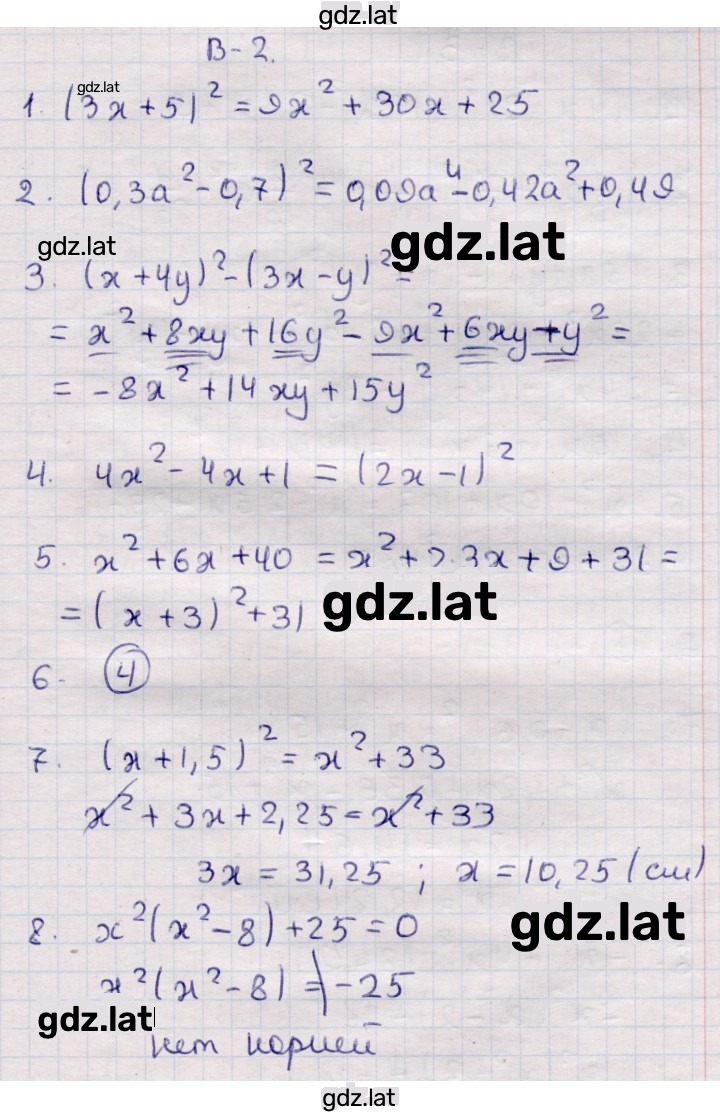 gdz.lat
В-2.
gdz.lat
1. (3x+5)² = 9x² + 30x + 25
2. (0,3a² - 0,7)² = 0,09a⁴ - 0,42a² + 0,49
gdz.lat
gdz.lat
3. (x+4y)² - (3x-y)² =
= x² + 8xy + 16y² - 9x² + 6xy + y² =
= -8x² + 14xy + 15y²
4. 4x² - 4x + 1 = (2x-1)²
5. x² + 6x + 40 = x² + 2·3x + 9 + 31 =
= (x+3)² + 31
gdz.lat
6. 4
7. (x+1,5)² = x² + 33
x² + 3x + 2,25 = x² + 33
3x = 31,25 ; x = 10,25 (см)
gdz.lat
8. x²(x²-8) + 25 = 0
x²(x²-8) = -25
gdz.lat
нет корней
gdz.lat